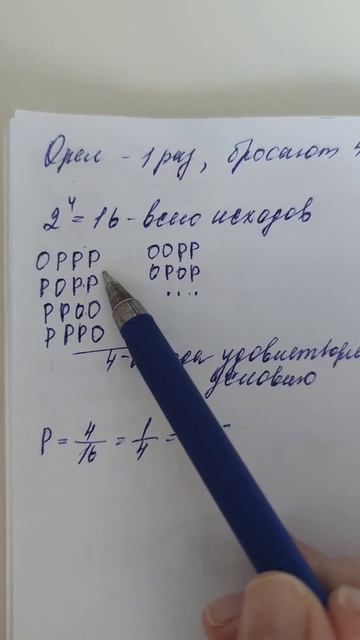 Орел - 1 раз, бросают 4
2⁴ = 16 - всего исходов
ОРРР ООРР
РОРР ОРОР
РРОО ....
РРРО
4- удовлетвор
условию
P = 4/16 = 1/4 =